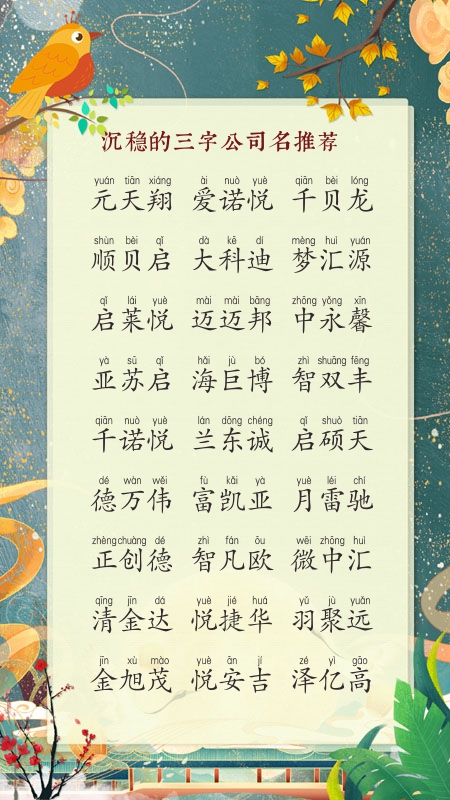 沉稳的三字公司名推荐
yuán tiān xiáng ài nuò yuè qiān bèi lóng
元天翔 爱诺悦 千贝龙
shùn bèi qǐ dà kē dí mèng huì yuán
顺贝启 大科迪 梦汇源
qǐ lái yuè mài mài bāng zhōng yǒng xīn
启莱悦 迈迈邦 中永馨
yà sū qǐ hǎi jù bó zhì shuāng fēng
亚苏启 海巨博 智双丰
qiān nuò yuè lán dōng chéng qǐ shuò tiān
千诺悦 兰东诚 启硕天
dé wàn wěi fù kǎi yà yuè léi chí
德万伟 富凯亚 月雷驰
zhèng chuàng dé zhì fán ōu wēi zhōng huì
正创德 智凡欧 微中汇
qīng jīn dá yuè jié huá yǔ jù yuǎn
清金达 悦捷华 羽聚远
jīn xù mào yuè ān jí zé yì gāo
金旭茂 悦安吉 泽亿高